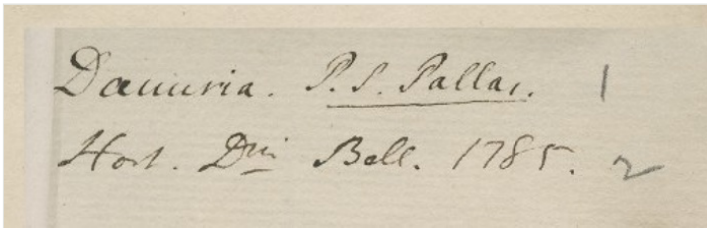 Dauuria. P. S. Pallas. 1
Hort. Dni Bell. 1785. 2